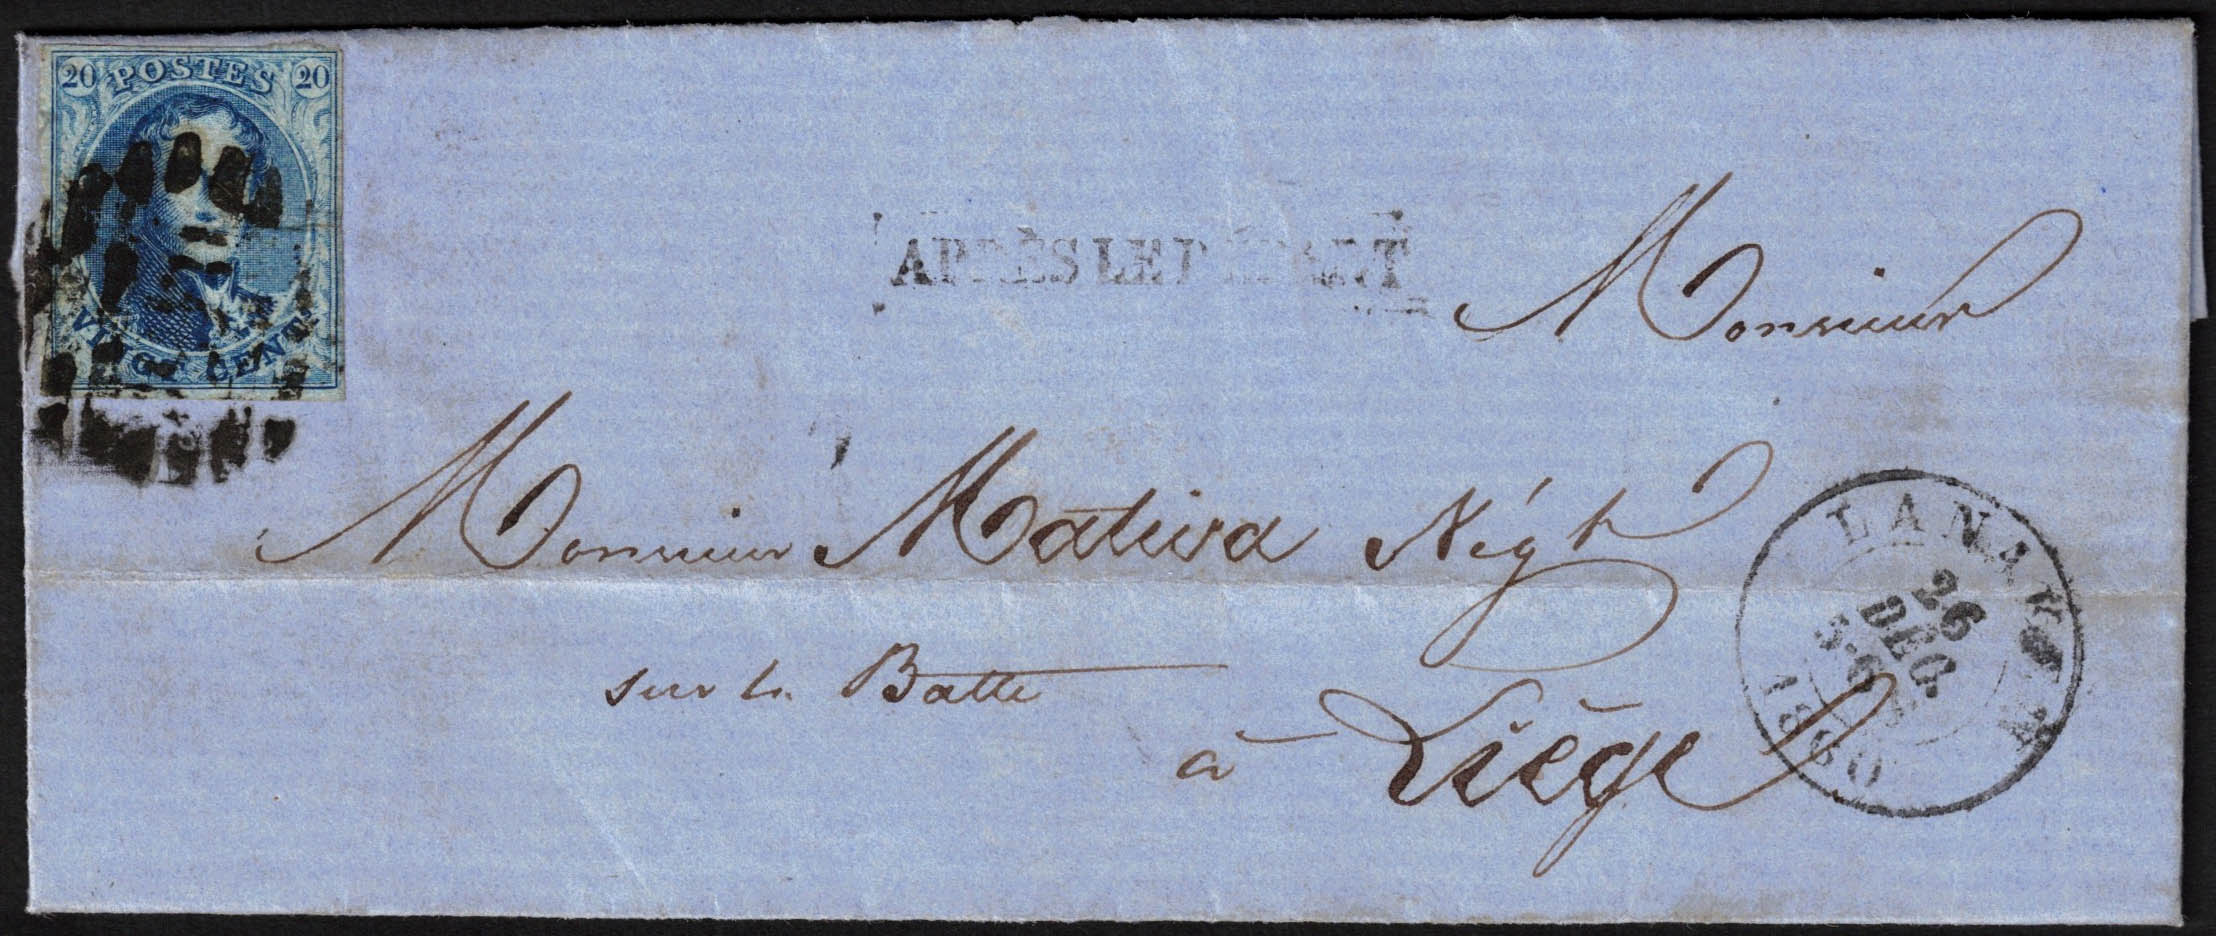 20 POSTES 20
VINGT CENTS
APRÈS LE DÉPART
Monsieur
Monsieur Mativa Négt
sur la Batte
à Liége
LANAKEN
26
DEC.
5-6
1860